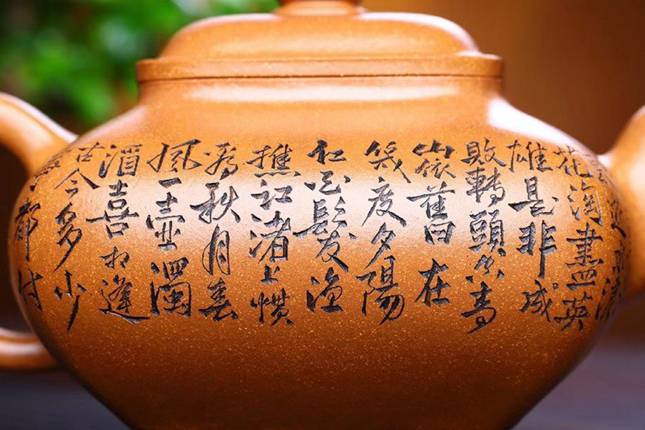 花淘盡英
雄是非成
敗轉頭空青
山依舊在
幾度夕陽
紅白髮漁
樵江渚上慣
看秋月春
風一壺濁
酒喜相逢
古今多少
都付